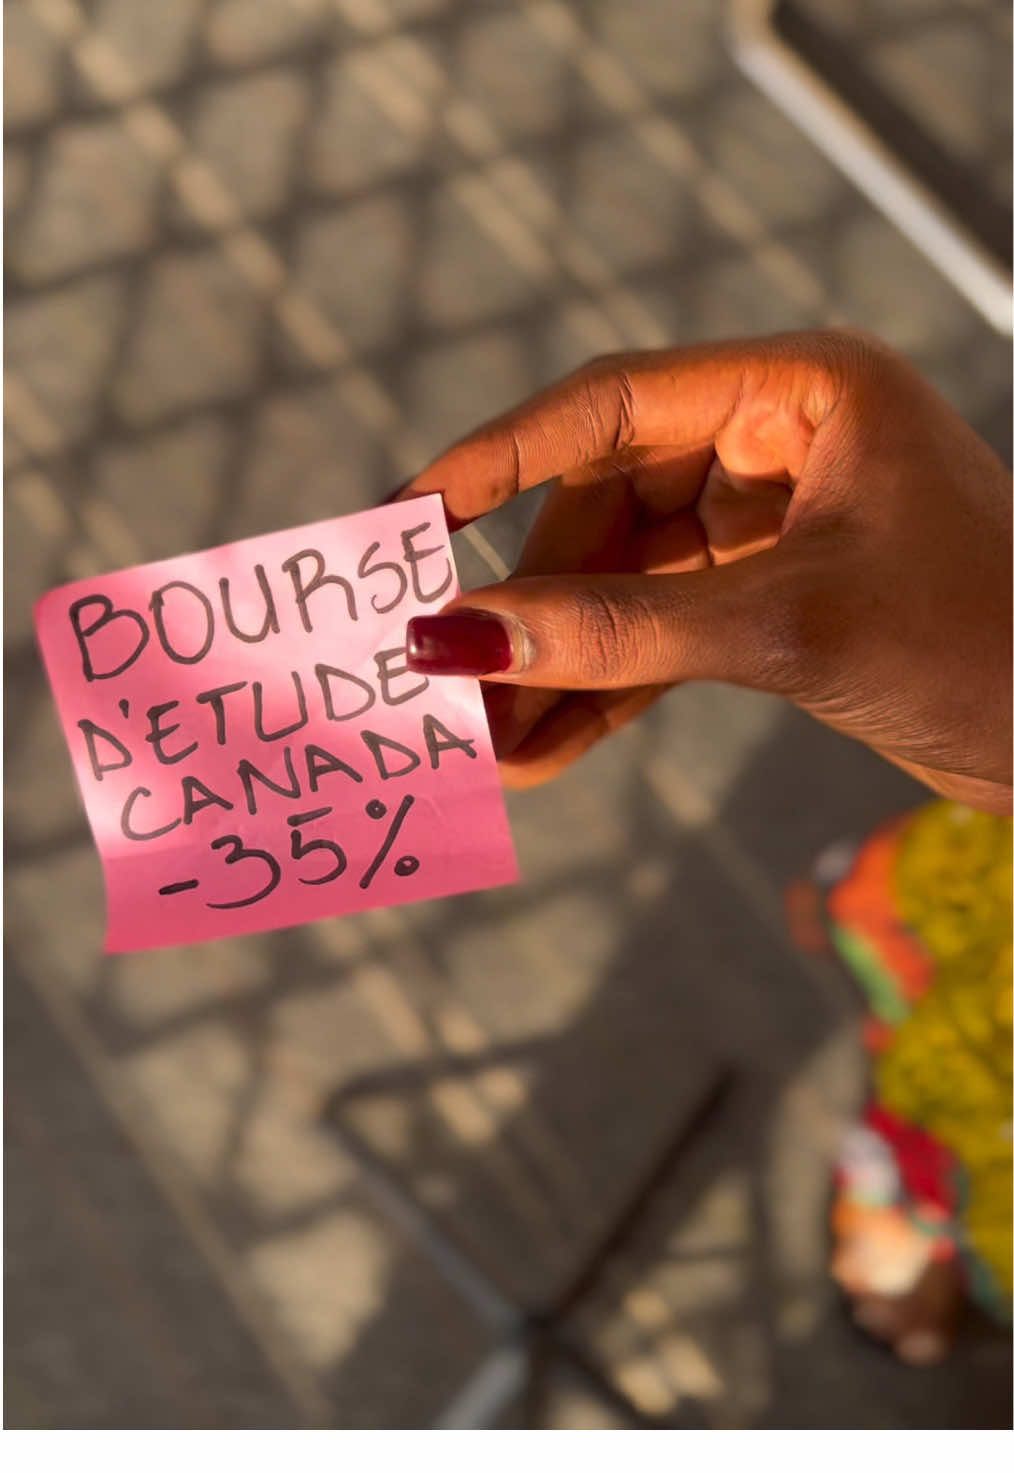 BOURSE
D'ETUDE
CANADA
-35%